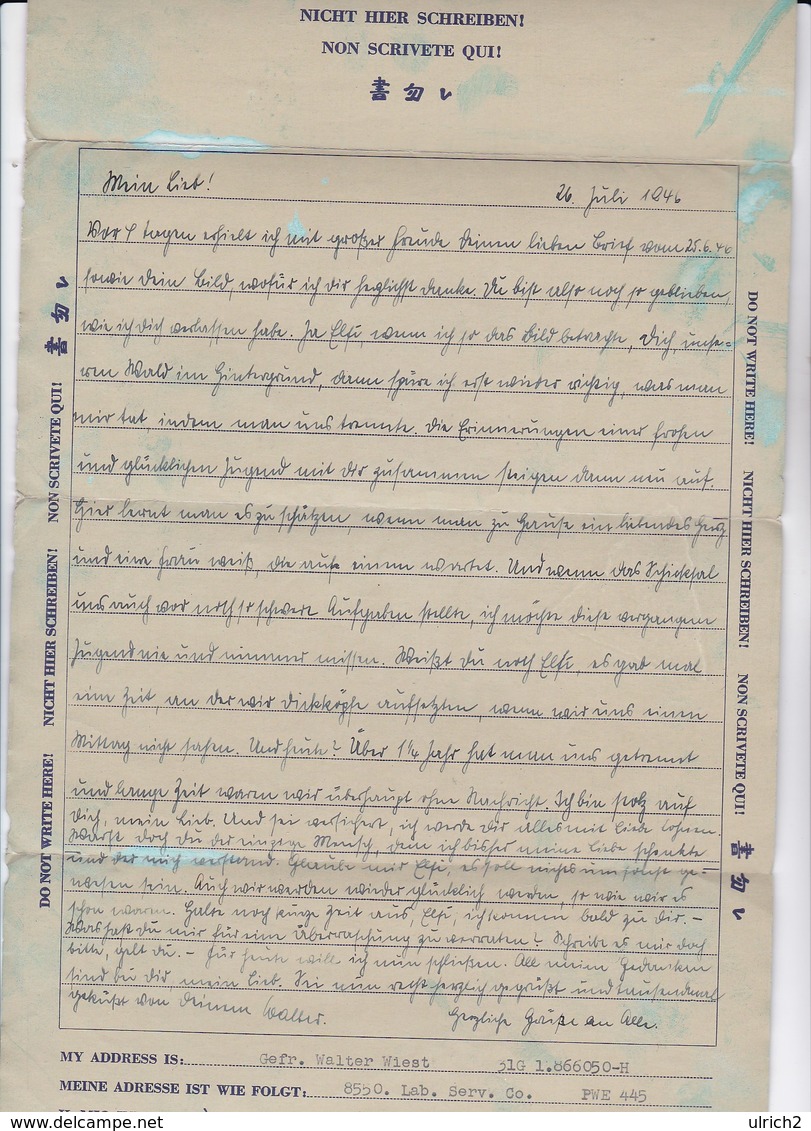 NICHT HIER SCHREIBEN!
NON SCRIVETE QUI!
書勿レ
Mein Lieb! 26. Juli 1946
Vor 4 Tagen erhielt ich mit großer Freude Deinen lieben Brief vom 25.6.46
sowie Dein Bild, wofür ich Dir herzlichst danke. Du bist also noch so geblieben,
wie ich Dich verlassen habe. Ja Elfi wenn ich so das Bild betrachte, Dich, unse-
ren Wald im Hintergrund, dann spüre ich erst wieder richtig, was man
mir tat indem man uns trennte. Die Erinnerungen einer frohen
und glücklichen Jugend mit Dir zusammen steigen dann neu auf.
Hier lernt man es zu schätzen, wenn man zu Hause ein liebendes Herz
und eine Frau weiß, die auf einem wartet. Und wenn das Schicksal
uns auch vor noch so schwere Aufgaben stellte, ich möchte diese vergangene
Jugend nie und nimmer missen. Weißt Du noch Elfi, es gab mal
eine Zeit, an der wir Dickköpfe aufsetzten, wenn wir uns einen
Mittag nicht sahen. Und heute? Über 1¼ Jahr hat man uns getrennt
und lange Zeit waren wir überhaupt ohne Nachricht. Ich bin stolz auf
Dich, mein Lieb. Und sei versichert, ich werde Dir alles mit Liebe lohnen.
Warst doch Du der einzige Mensch, dem ich bisher meine Liebe schenkte
und der mich verstand. Glaube mir Elfi, es soll nichts umsonst ge-
wesen sein. Auch wir werden wieder glücklich werden, so wie wir es
schon waren. Halte noch kurze Zeit aus, Elfi, ich komme bald zu Dir. –
Was hast Du mir für eine Überraschung zu verraten? Schreibe es mir doch
bitte, gelt Du. – Für heute will ich nun schließen. All meine Gedanken
sind bei Dir mein Lieb. Sei nun recht herzlich gegrüßt und tausendmal
geküßt von Deinem Walter. Herzliche Grüße an Alle.
DO NOT WRITE HERE! NICHT HIER SCHREIBEN! NON SCRIVETE QUI! 書勿レ
DO NOT WRITE HERE! NICHT HIER SCHREIBEN! NON SCRIVETE QUI! 書勿レ
MY ADDRESS IS: Gefr. Walter Wiest 31G 1.866050-H
MEINE ADRESSE IST WIE FOLGT: 8550. Lab. Serv. Co. PWE 445
ulrich2